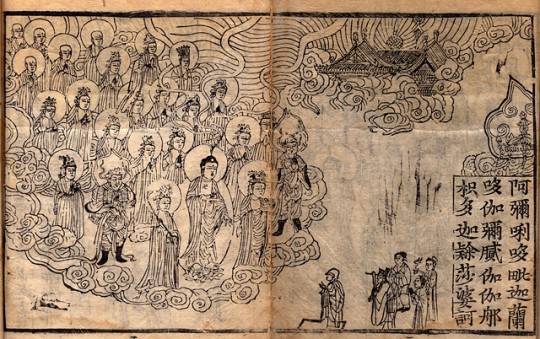 阿彌唎哆毗迦蘭
哆伽彌膩伽伽那
枳多迦隸莎婆訶